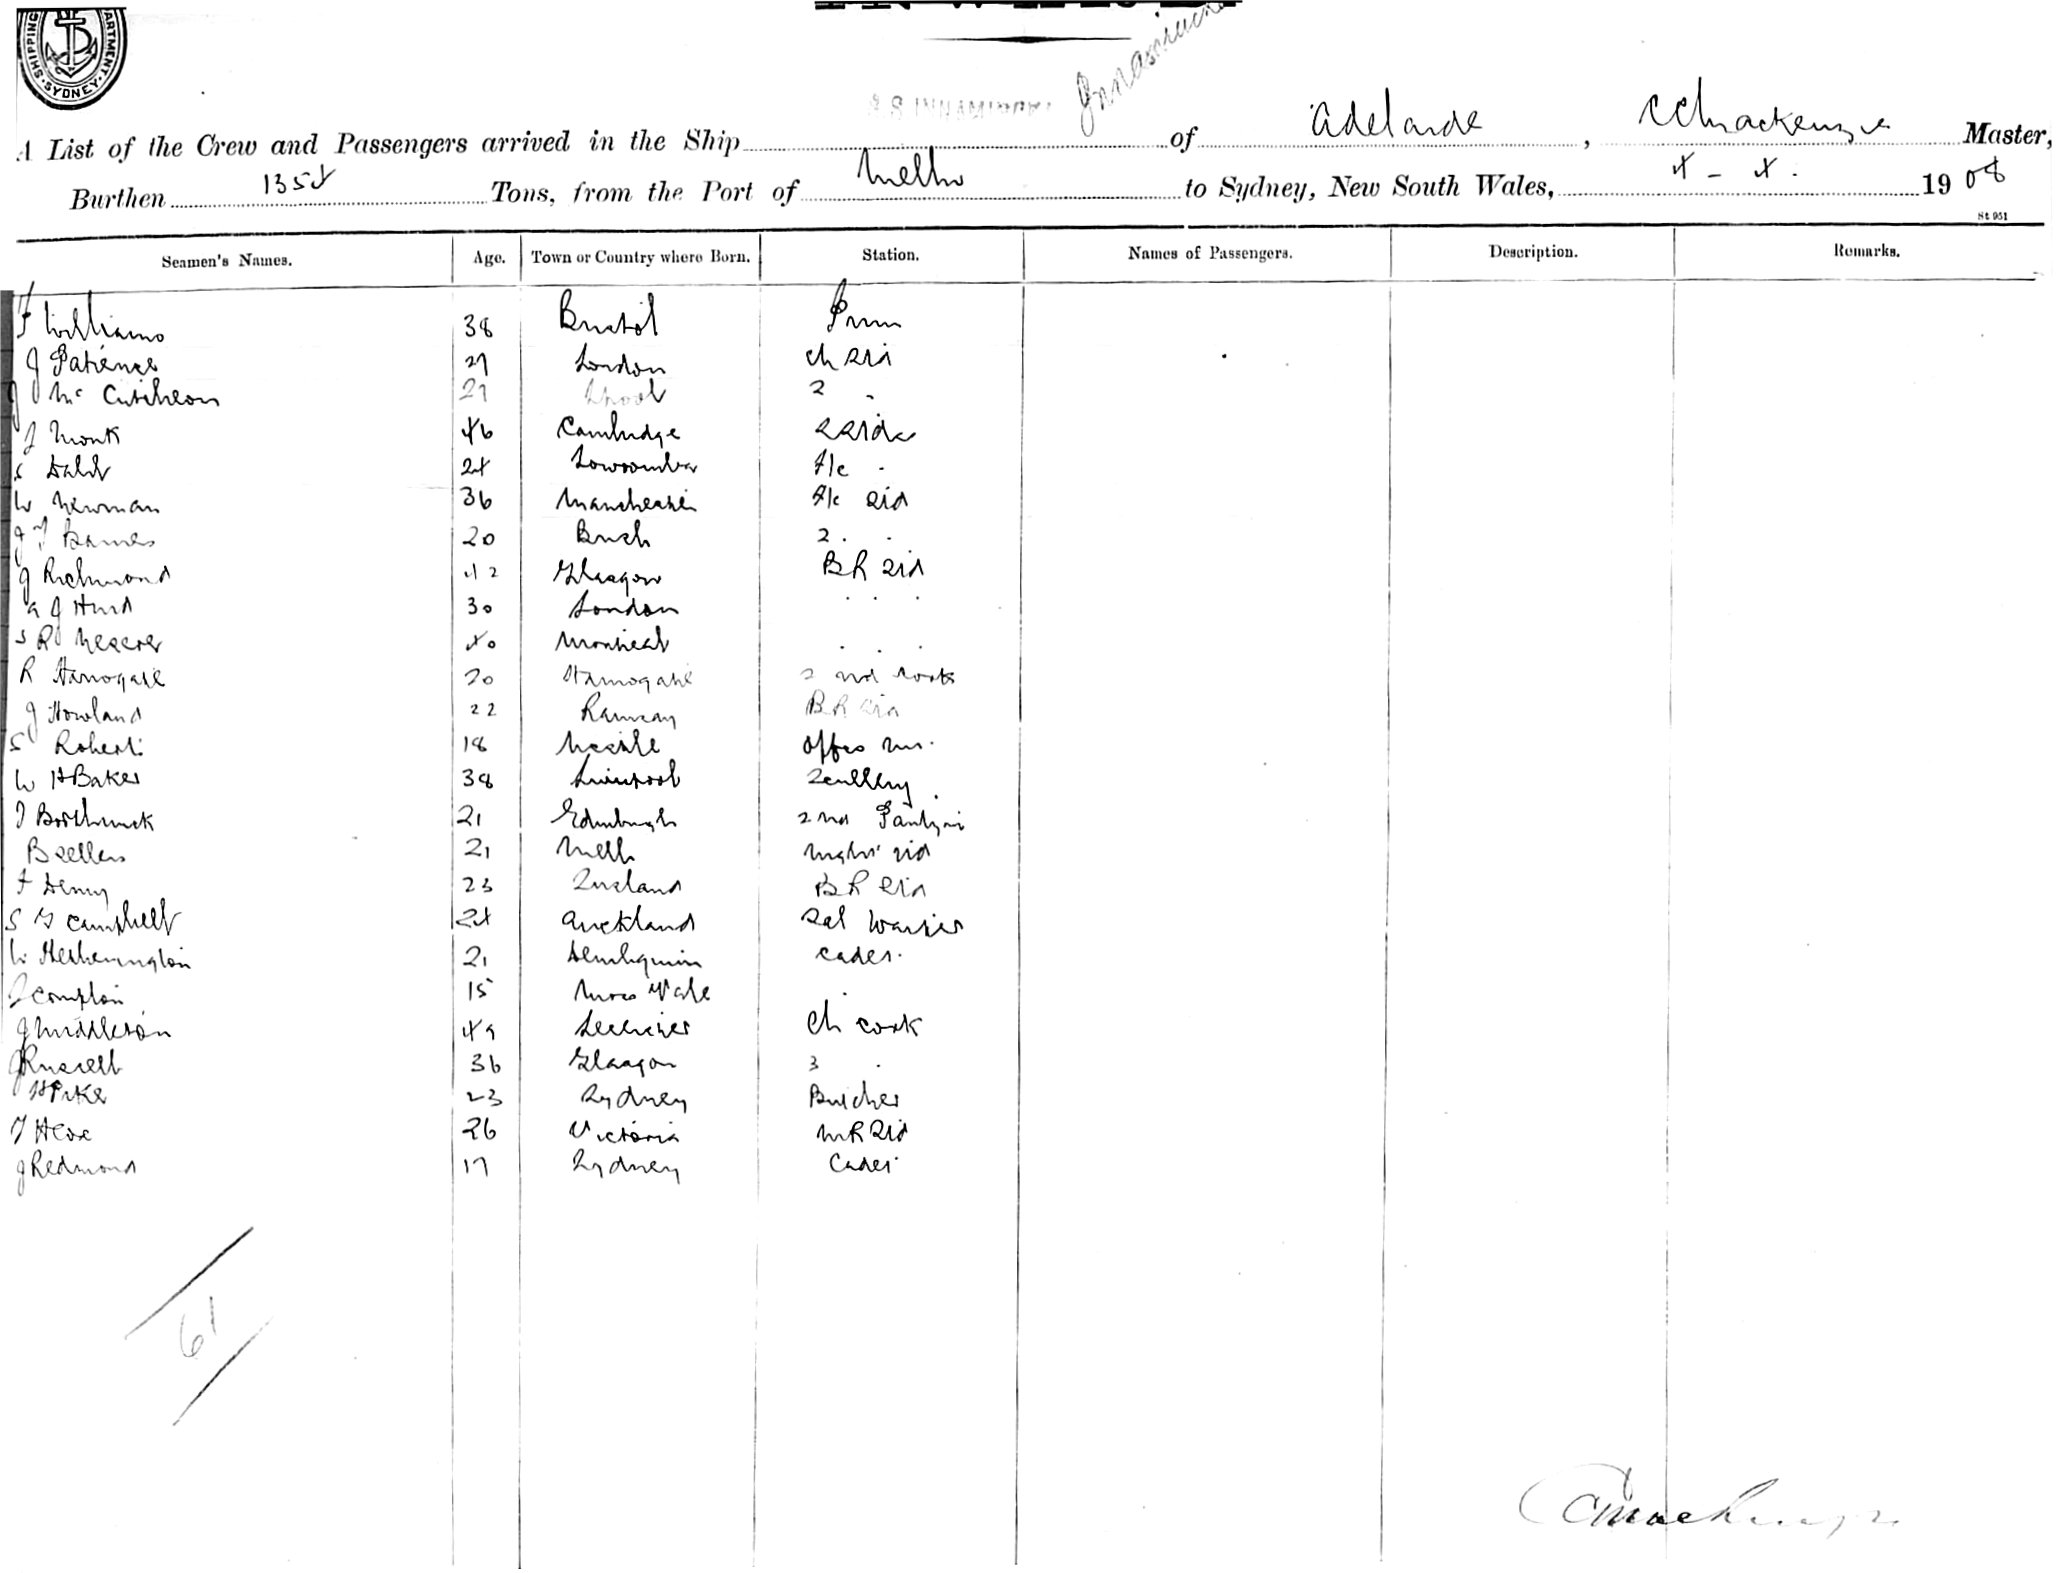 SHIPPING DEPARTMENT SYDNEY
S.S. INNAMINCKA Innamincka
A List of the Crew and Passengers arrived in the Ship of Adelaide, C Mackenzie Master,
Burthen 1354 Tons, from the Port of Melb to Sydney, New South Wales, 4 - 4 . 1908
St 951
Seamen's Names. Age. Town or Country where Born. Station. Names of Passengers. Description. Remarks.
F Williams 38 Bristol
J Patience 27 London Ch Std
J McCutcheon 27 Lpool 2 "
J Monk 46 Cambridge
S 24 Toowoomba F/c "
W Newman 36 Manchester F/c Std
J T Barnes 20 2 . .
J Richmond 42 Glasgow B R Std
A J Hurd 30 London " " "
S R 40 Montreal . . .
R Harrogate 20 Harrogate 2nd Cook
J Howland 22 Ramsay B R Std
S Roberts 18 Ncastle Offrs
W H Baker 38 Liverpool Scullery
T Borthwick 21 Edinburgh 2nd Pantry
B Sellers 21 Melb Night Std
F Denny 23 B R Std
S G Campbell 24 Auckland Sal Waiter
W Hetherington 21 Deniliquin Cadet
J Compton 15 Moss Vale "
J Middleton 49 Leicester Ch Cook
J Russell 36 Glasgow 3 "
H Pike 23 Sydney Butcher
T H Cox 26 Victoria M R Std
J Redmond 17 Sydney Cadet
61
C Mackenzie